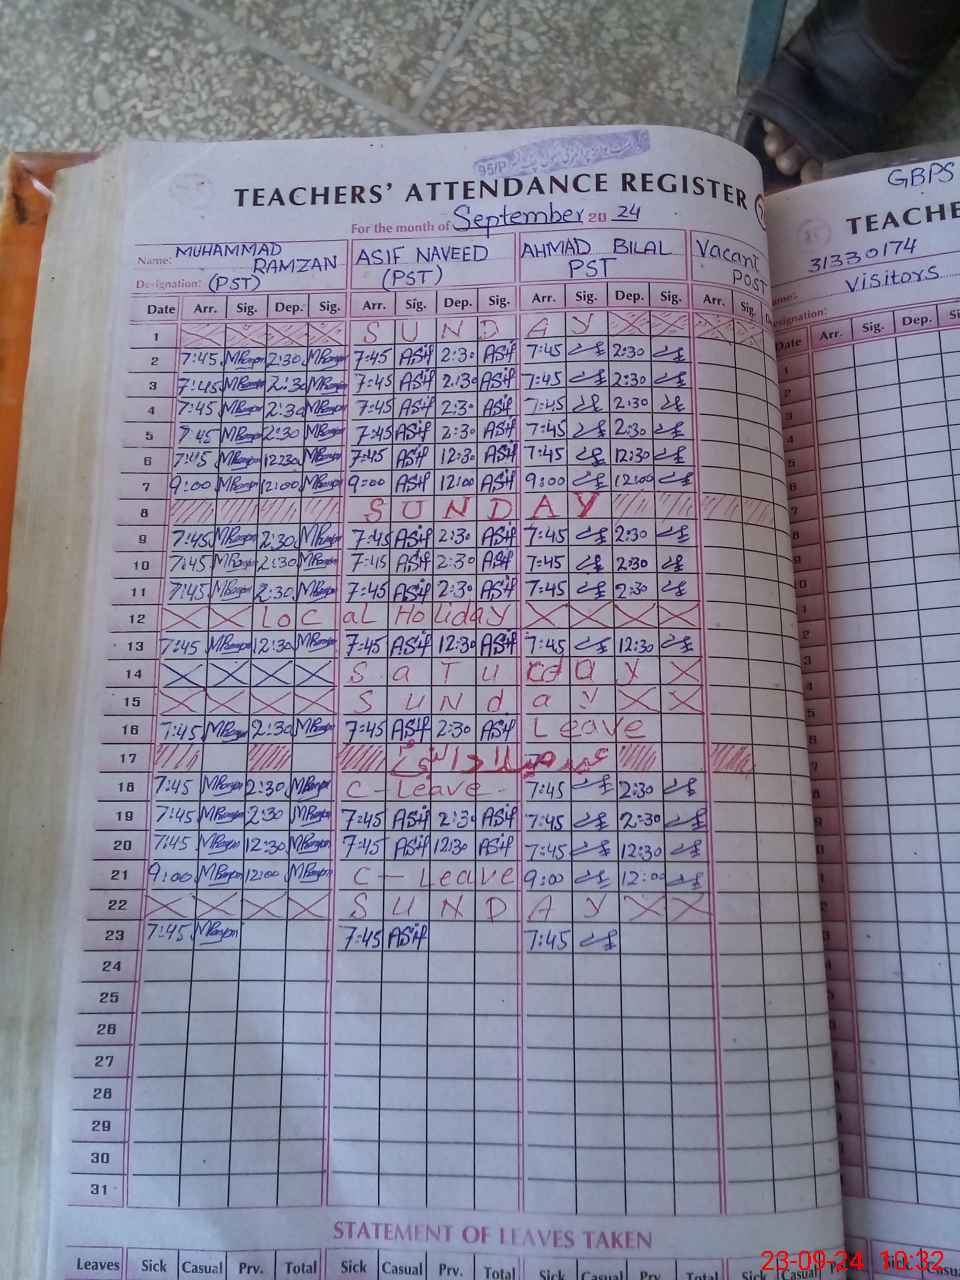 95/P
TEACHERS' ATTENDANCE REGISTER
For the month of September 20 24
Name: MUHAMMAD RAMZAN ASIF NAVEED AHMAD BILAL Vacant
Designation: (PST) (PST) PST POST
Date Arr. Sig. Dep. Sig. Arr. Sig. Dep. Sig. Arr. Sig. Dep. Sig. Arr. Sig.
1 SUNDAY
2 7:45 2:30 7:45 ASif 2:30 ASif 7:45 2:30
3 7:45 2:30 7:45 ASif 2:30 ASif 7:45 2:30
4 7:45 2:30 7:45 ASif 2:30 ASif 7:45 2:30
5 7:45 2:30 7:45 ASif 2:30 ASif 7:45 2:30
6 7:45 12:30 7:45 ASif 12:30 ASif 7:45 12:30
7 9:00 12:00 9:00 ASif 12:00 ASif 9:00 12:00
8 SUNDAY
9 7:45 2:30 7:45 ASif 2:30 ASif 7:45 2:30
10 7:45 2:30 7:45 ASif 2:30 ASif 7:45 2:30
11 7:45 2:30 7:45 ASif 2:30 ASif 7:45 2:30
12 LOCaL HoLiday
13 7:45 12:30 7:45 ASif 12:30 ASif 7:45 12:30
14 SaTurday
15 SUNday
16 7:45 2:30 7:45 ASif 2:30 ASif Leave
17 عید میلاد النبی
18 7:45 2:30 C-Leave- 7:45 2:30
19 7:45 2:30 7:45 ASif 2:30 ASif 7:45 2:30
20 7:45 12:30 7:45 ASif 12:30 ASif 7:45 12:30
21 9:00 12:00 C-Leave 9:00 12:00
22 SUNDAY
23 7:45 7:45 ASif 7:45
24
25
26
27
28
29
30
31
STATEMENT OF LEAVES TAKEN
Leaves Sick Casual Prv. Total Sick Casual Prv. Total Sick Casual Prv. Total Sick Casual
GBPS
TEACHE
31330174
Visitors
Date Arr. Sig. Dep.
23-09-24 10:32